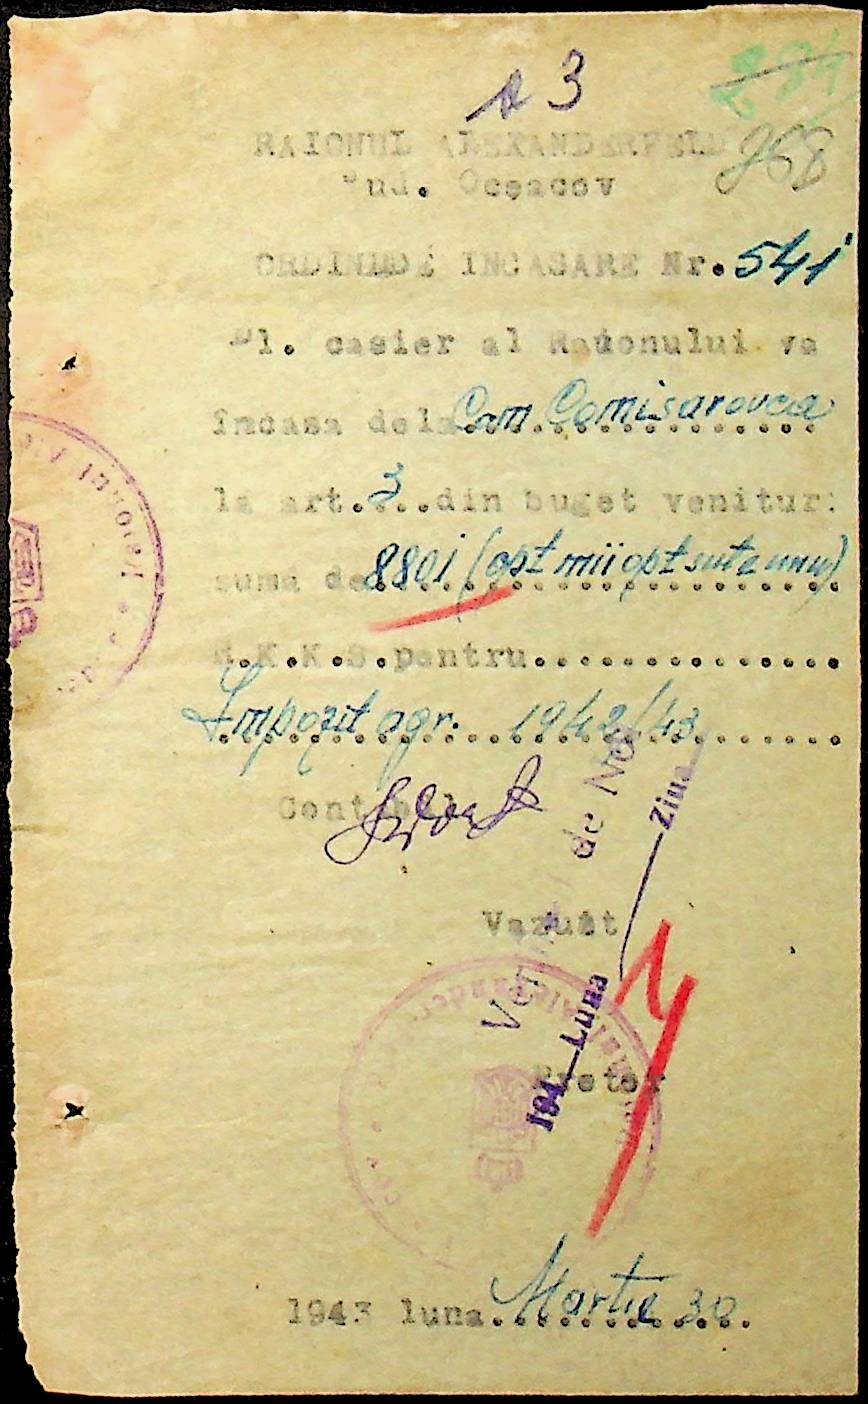 a 3
284
268
RAIONUL ALEXANDERFELD
Jud. Oceacov
ORDIN DE INCASARE Nr. 541
Dl. casier al Raionului va
încasa dela Com. Comisarovca
la art. 3 ..din buget venituri
suma de 8801 (opt mii opt sute unu)
R.K.K.S. pentru...............
Impozit agr. 1942/43
Contabil
Vazut
Pretor
de No
194 Luna Ziua
1943 luna Martie 30